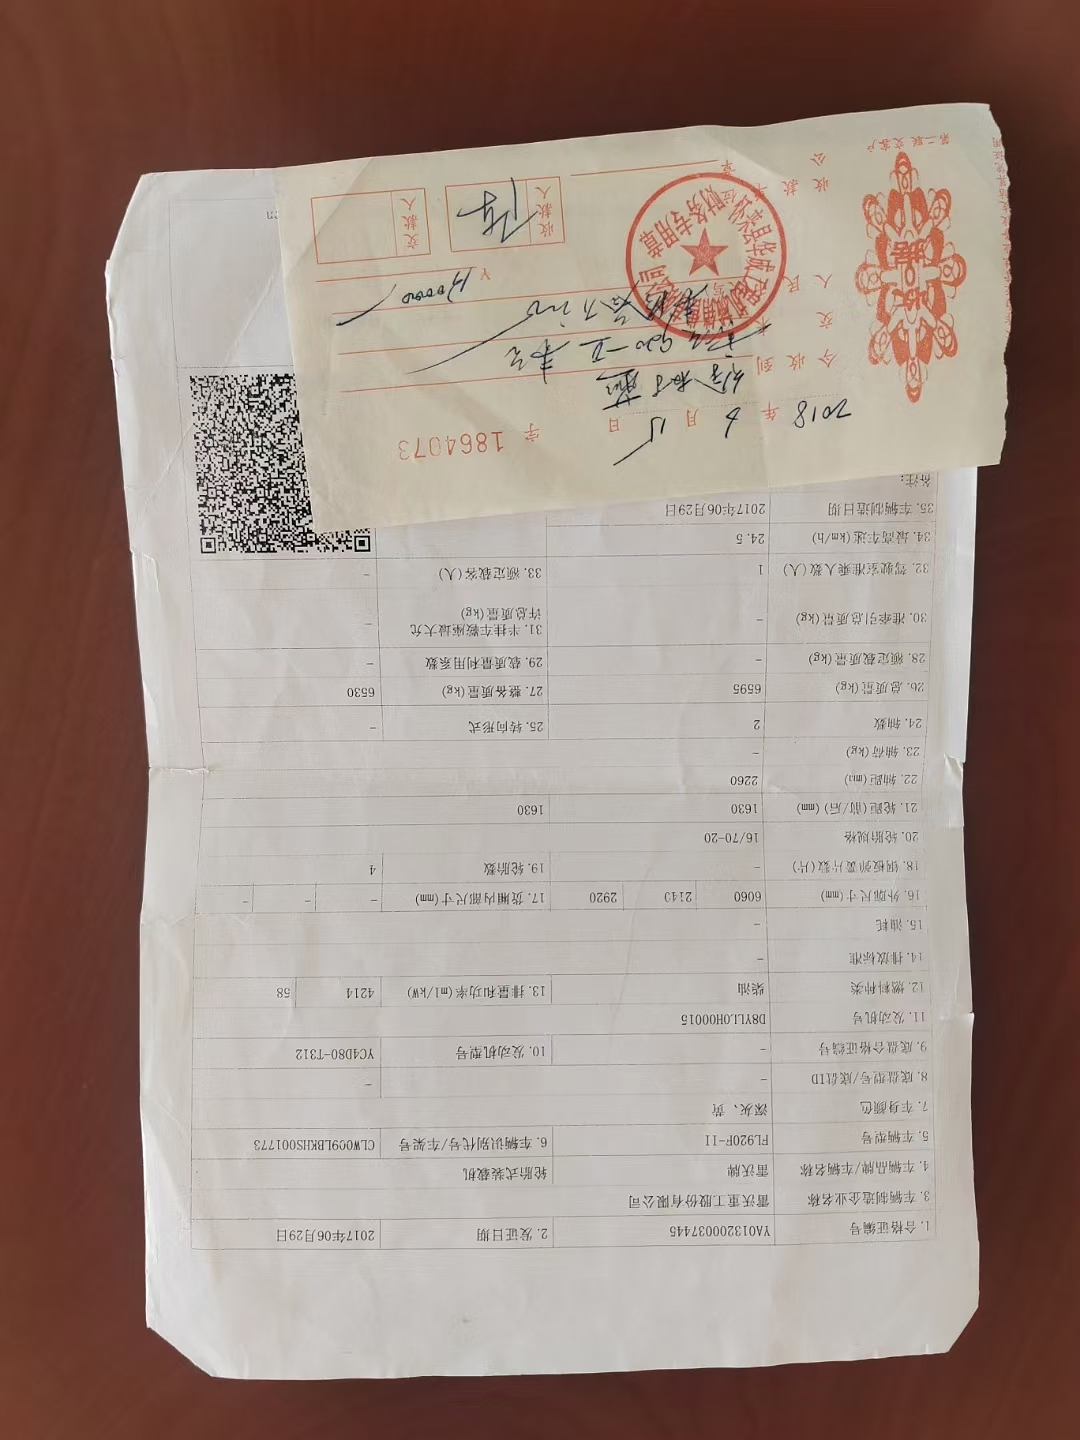 1. 合格证编号 YA01320003​7445 2. 发证日期 2017年06月29日
3. 车辆制造企业名称 雷沃重工股份有限公司
4. 车辆品牌/车辆名称 雷沃牌 轮胎式装载机
5. 车辆型号 FL920F-II 6. 车辆识别代号/车架号 CLW009LBKHS001773
7. 车身颜色 深灰、黄
8. 底盘型号/底盘ID - -
9. 底盘合格证编号 - 10. 发动机型号 YC4D80-T312
11. 发动机号 D8YLL0H00015
12. 燃料种类 柴油 13. 排量和功率(ml/kW) 4214 58
14. 排放标准 -
15. 油耗 -
16. 外廓尺寸(mm) 6060 2140 2920 17. 货厢内部尺寸(mm) - - -
18. 钢板弹簧片数(片) - 19. 轮胎数 4
20. 轮胎规格 16/70-20
21. 轮距(前/后)(mm) 1630 1630
22. 轴距(mm) 2260
23. 轴荷(kg) -
24. 轴数 2 25. 转向形式 -
26. 总质量(kg) 6595 27. 整备质量(kg) 6530
28. 额定载质量(kg) - 29. 载质量利用系数 -
30. 准牵引总质量(kg) - 31. 半挂车鞍座最大允
许总质量(kg) -
32. 驾驶室准乘人数(人) 1 33. 额定载客(人) -
34. 最高车速(km/h) 24.5
35. 车辆制造日期 2017年06月29日
备注:
字 1864073
2018 年 6 月 15 日
今收到
交来
人民
¥
收款
公章
收款人
交款人
收据
第二联交客户
财务专用章